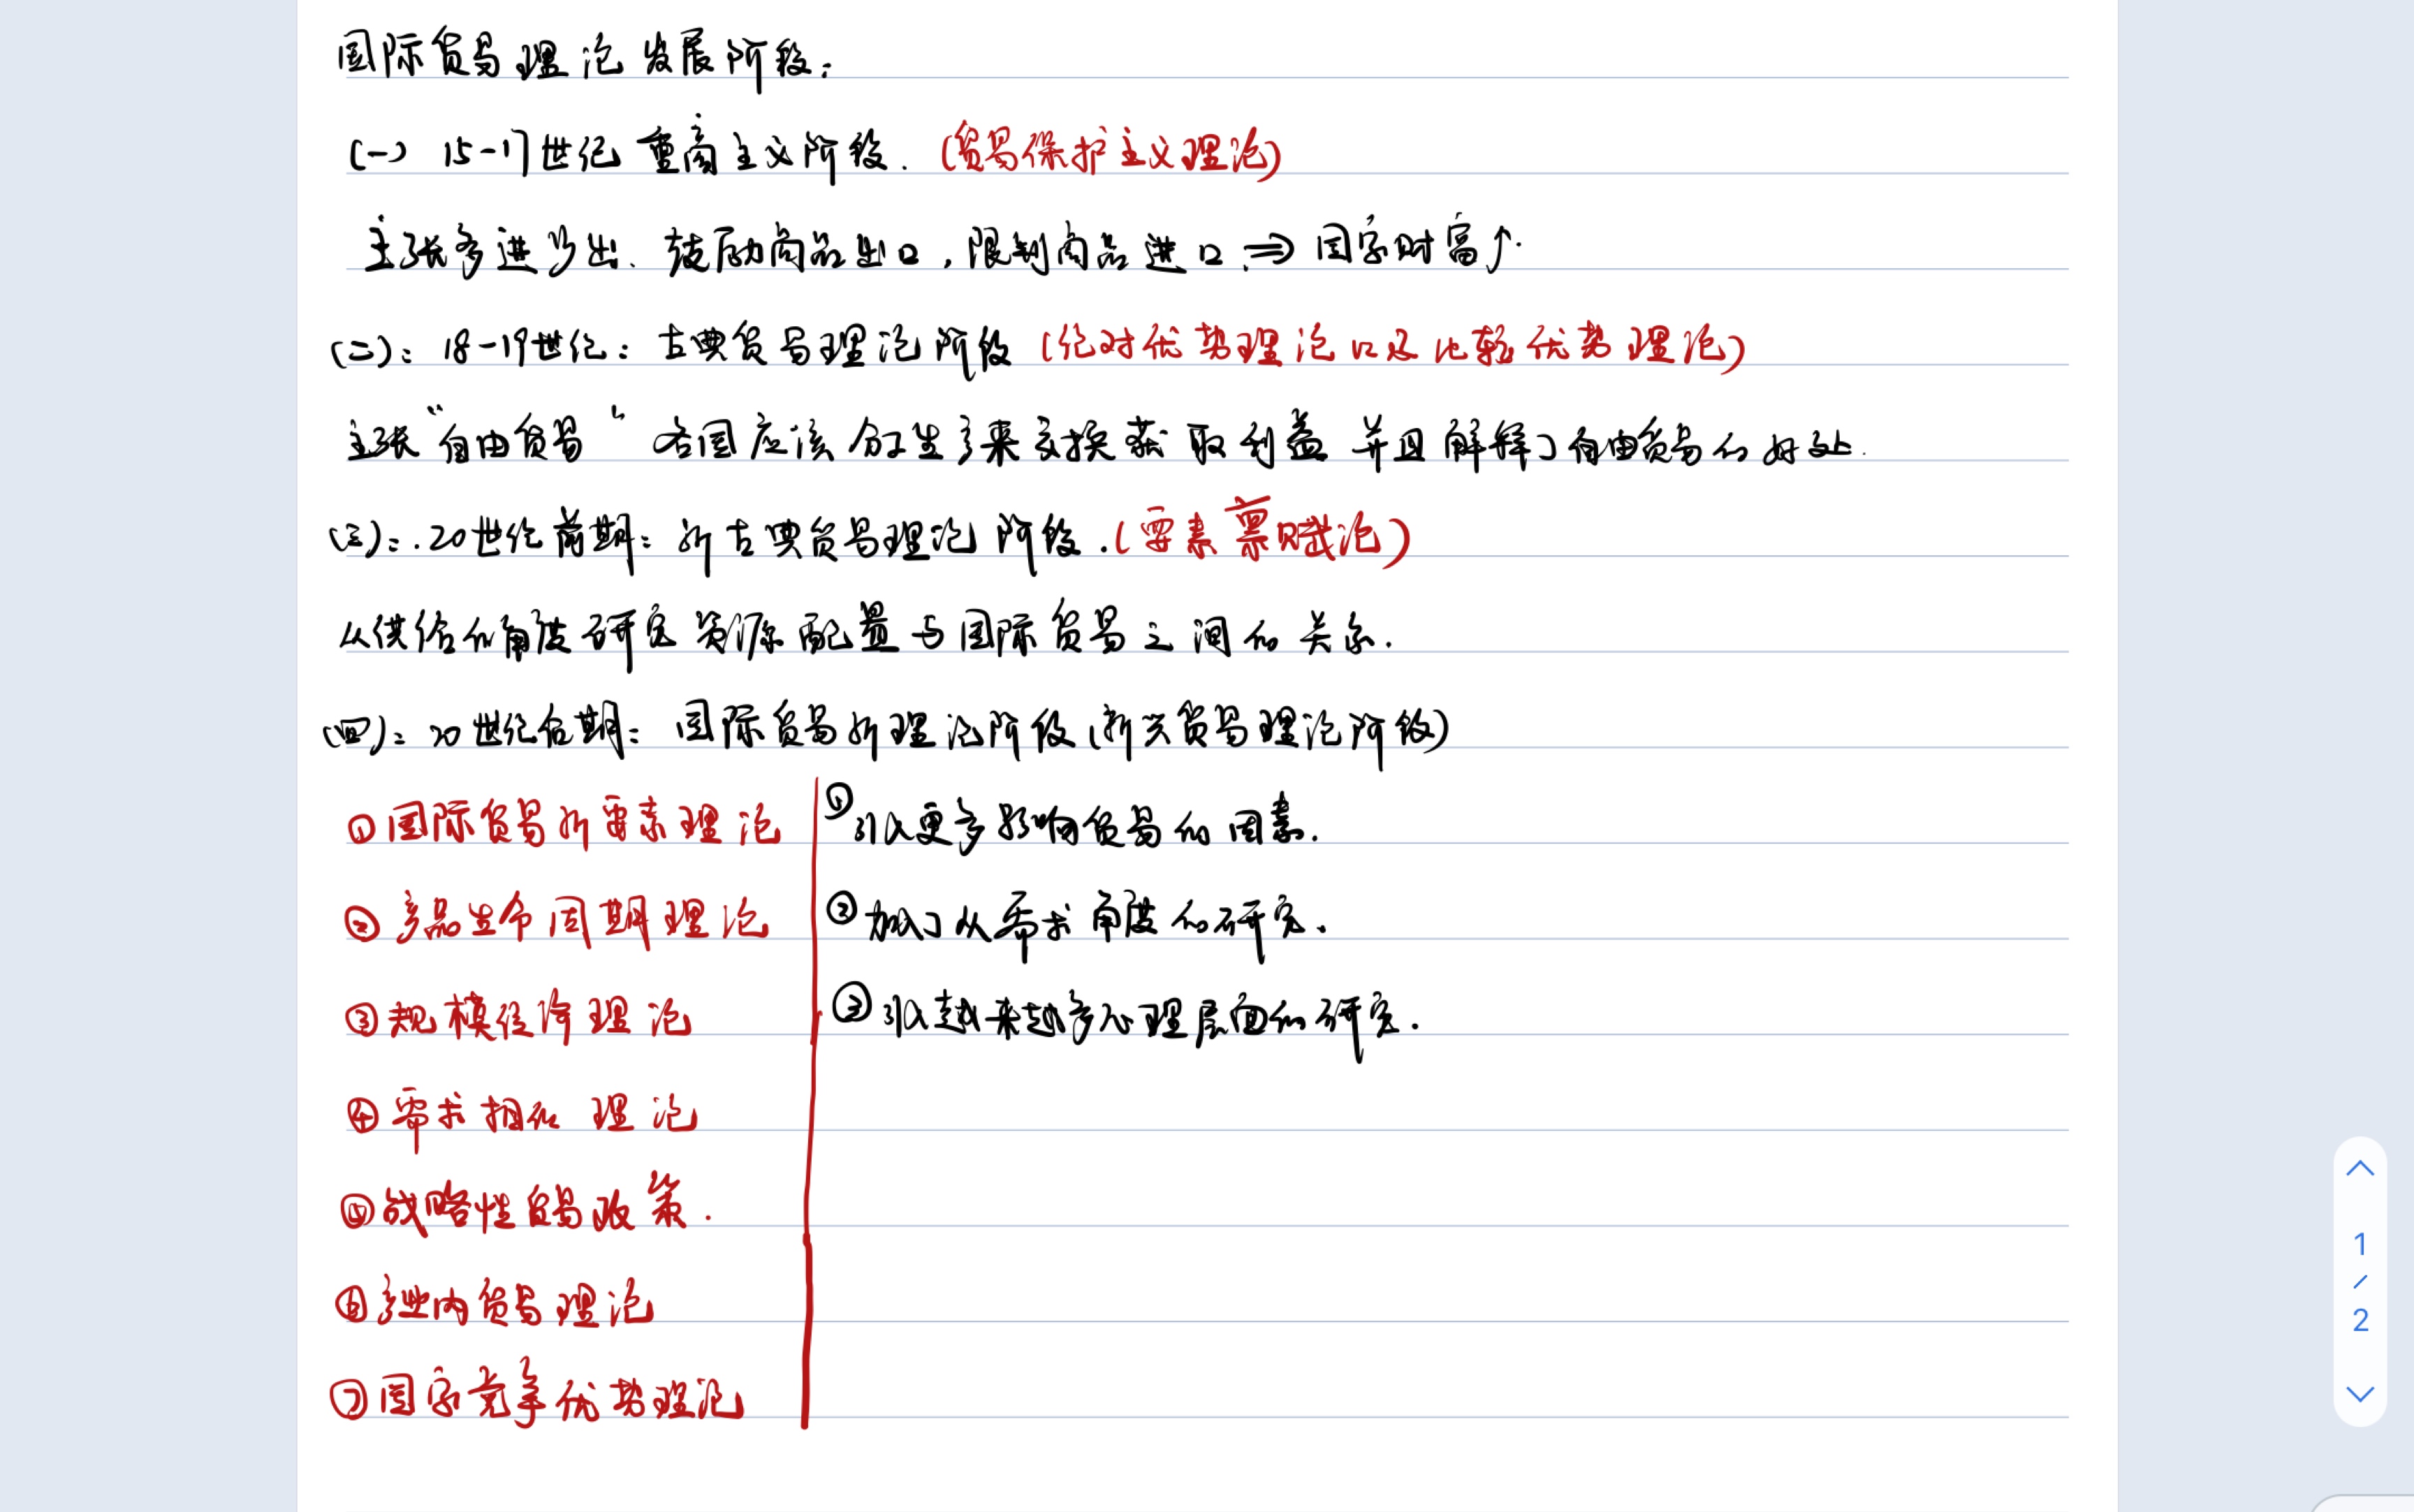 国际贸易理论发展阶段：
(一) 15-17世纪 重商主义阶段. (贸易保护主义理论)
主张多进少出. 鼓励商品出口，限制商品进口 ⇒ 国家财富↑.
(二)：18-19世纪：古典贸易理论阶段 (绝对优势理论以及比较优势理论)
主张“自由贸易” 各国应该分工生产来交换获取利益 并且解释了自由贸易的好处.
(三)：20世纪前期：新古典贸易理论阶段. (要素禀赋论)
从供给的角度研究资源配置与国际贸易之间的关系.
(四)：20世纪后期：国际贸易新理论阶段 (新兴贸易理论阶段)
①国际贸易新要素理论
②产品生命周期理论
③规模经济理论
④需求相似理论
⑤战略性贸易政策.
⑥产业内贸易理论
⑦国家竞争优势理论
①引入更多影响贸易的因素.
②加入了从需求角度的研究.
③引入越来越多心理层面的研究.
1
/
2